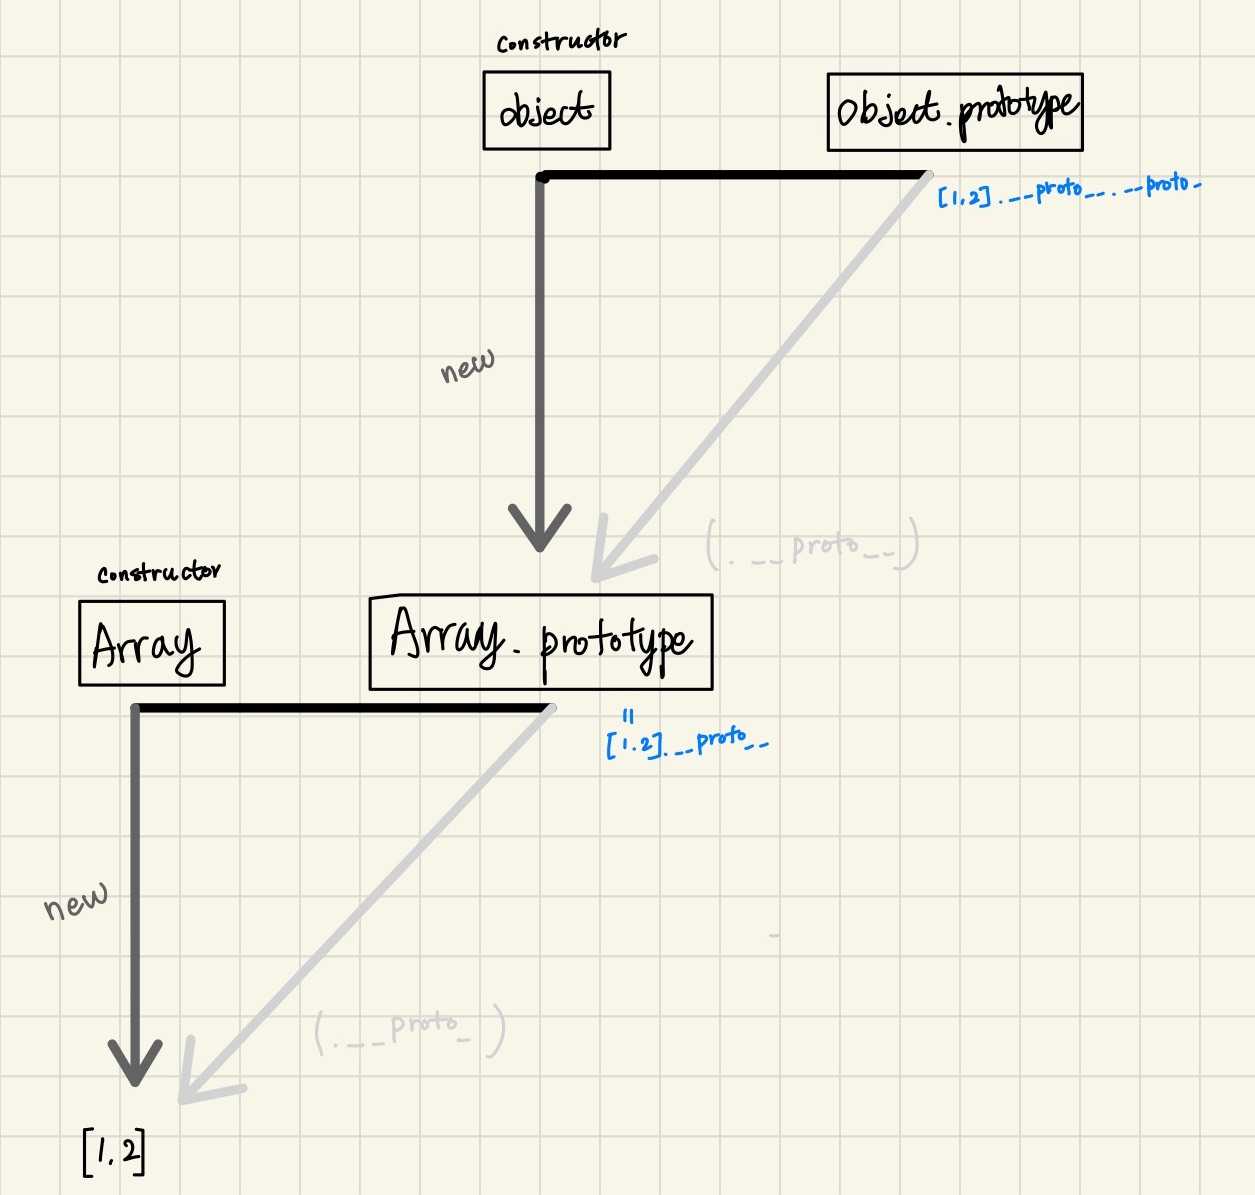 constructor
object
Object.prototype
[1,2].__proto__.__proto_
new
(.__proto__)
constructor
Array
Array.prototype
=
[1.2].__proto__
new
(.___proto_)
[1,2]